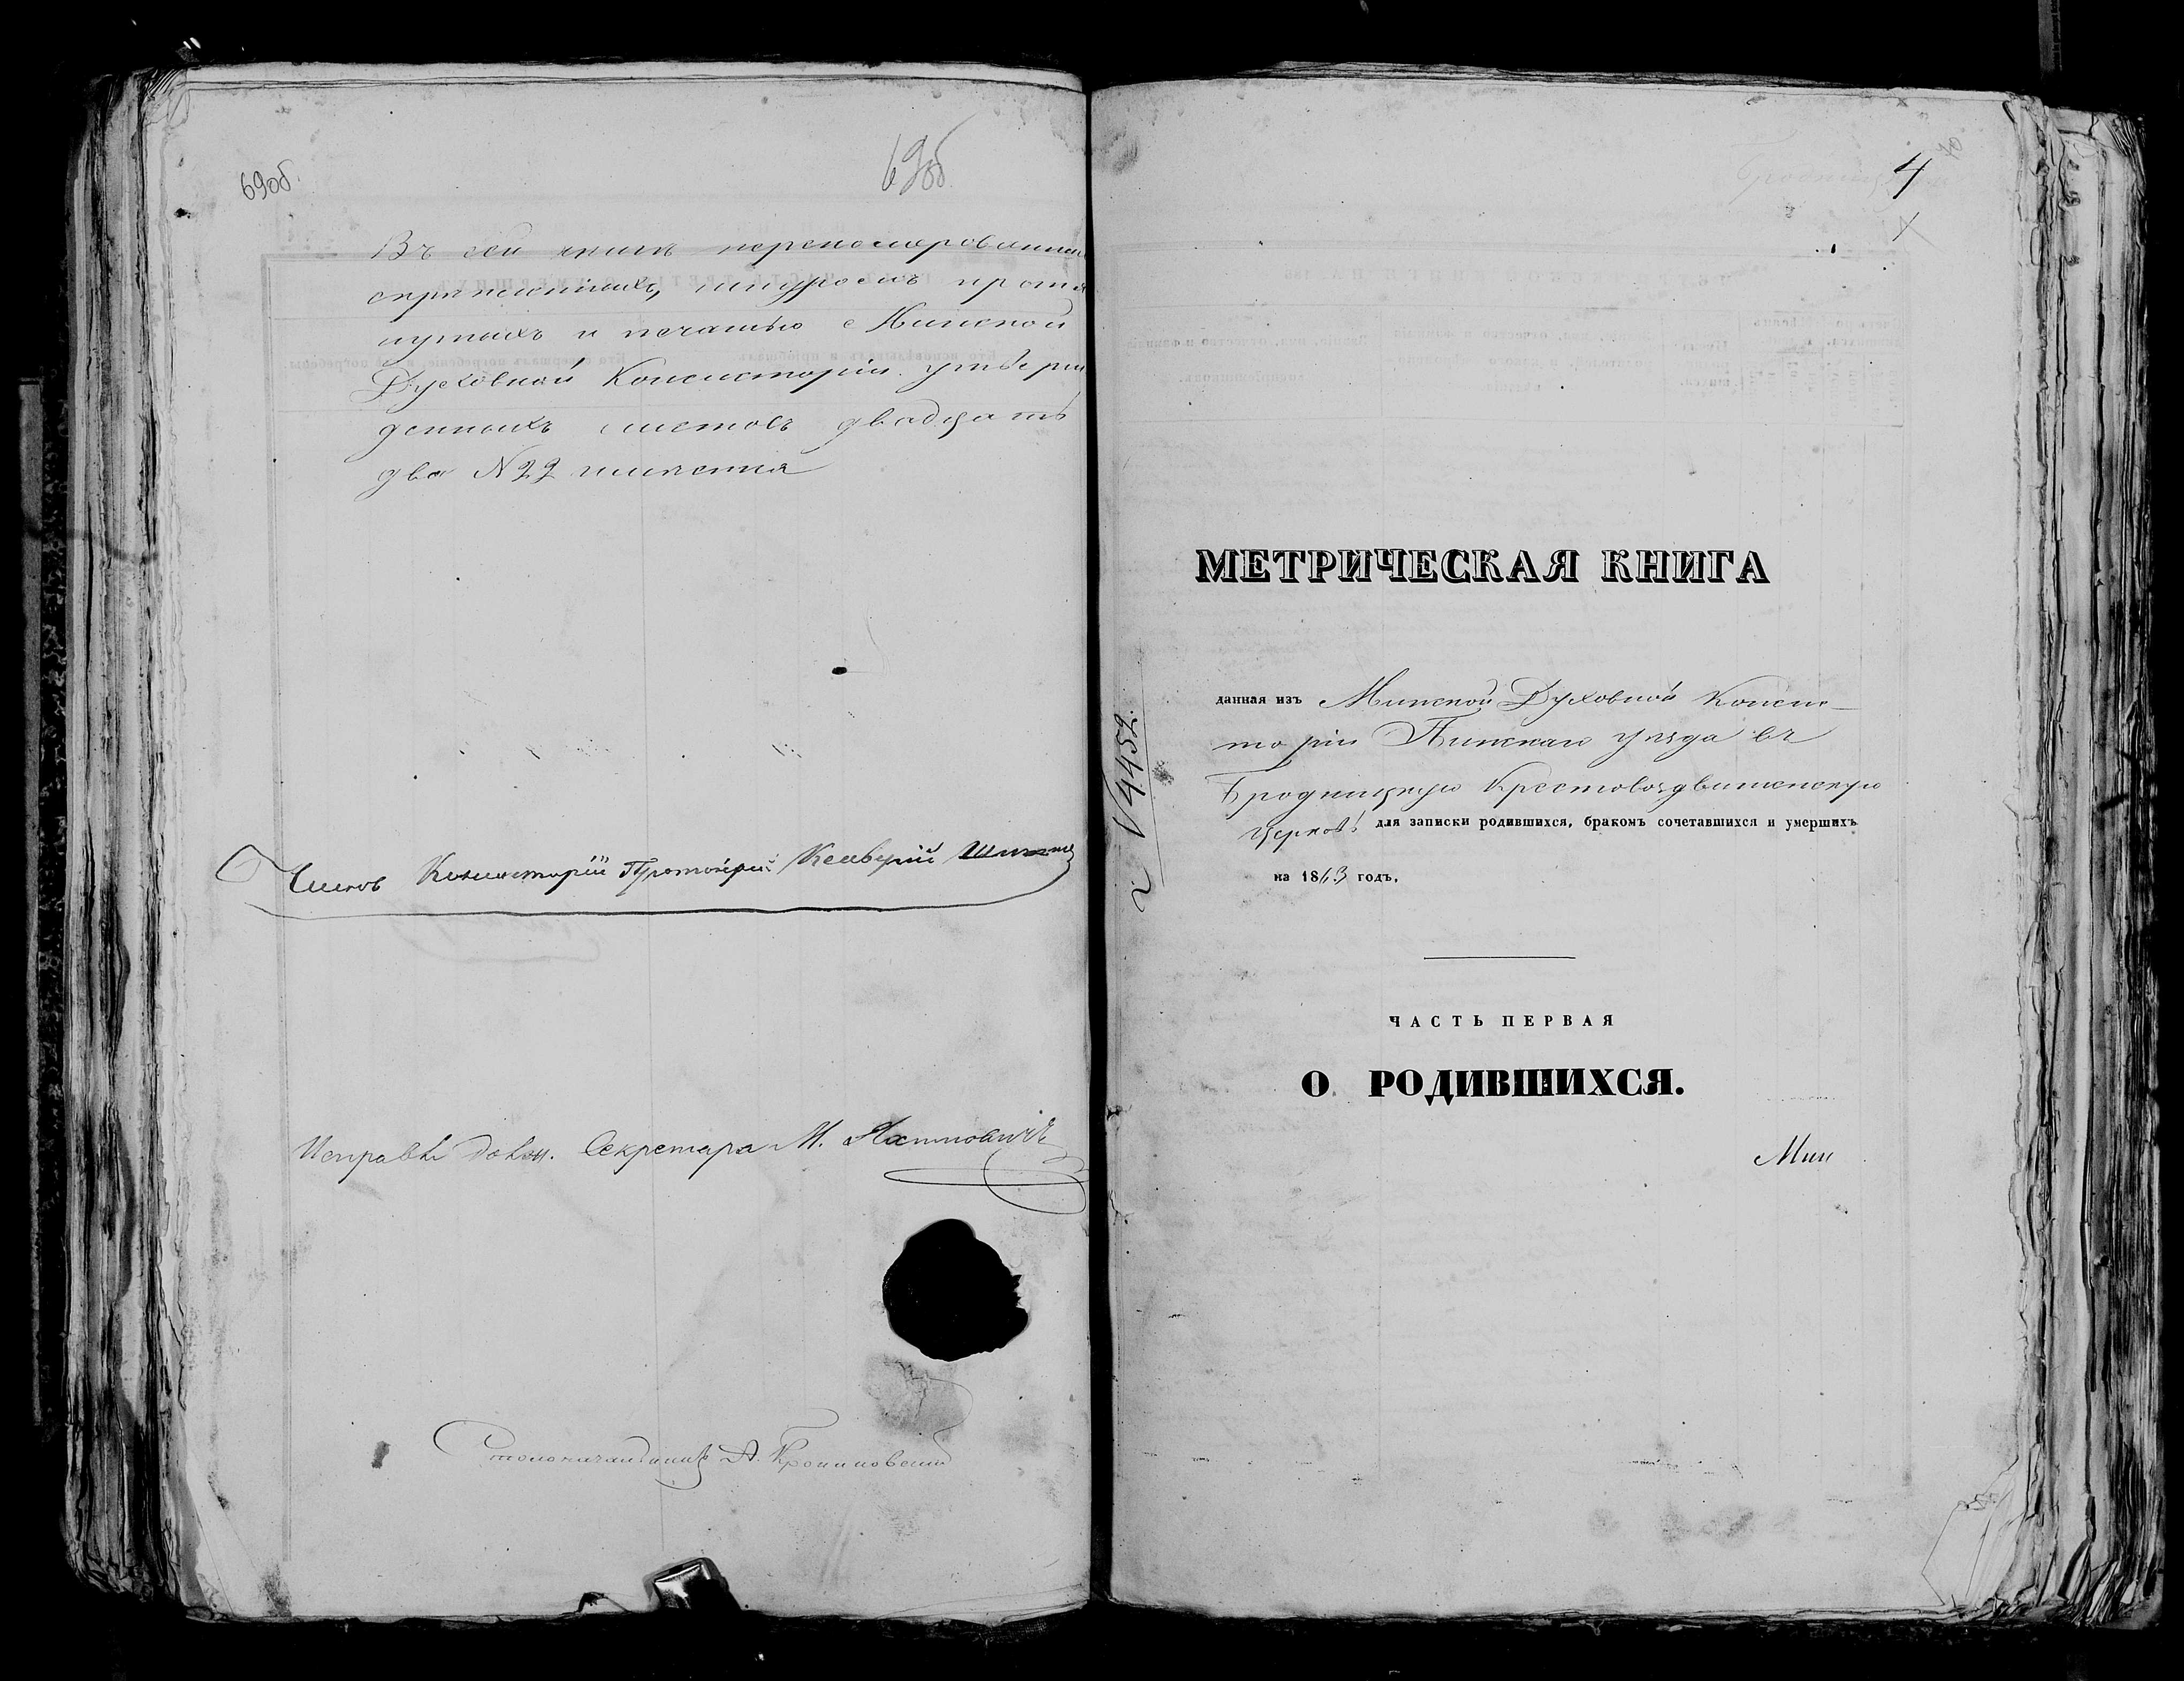 69об.
69об
Въ сей книгѣ перенумерованныхъ
скрѣпленныхъ, шнуромъ протя
нутыхъ и печатью Минской
Духовной Консисторіи утверж
денныхъ листовъ двадцать
два N 22 листа
Членъ Консисторіи Протоіерей
Исправл. долж. Секретаря М.
Столоначальникъ А.
4
70
МЕТРИЧЕСКАЯ КНИГА
данная изъ Минской Духовной Консис-
торіи Пинскаго уѣзда въ
Бродницкую Крестовоздвиженскую
церковь для записки родившихся, бракомъ сочетавшихся и умершихъ
на 1863 годъ.
4452.
ЧАСТЬ ПЕРВАЯ
О РОДИВШИХСЯ.
Мин